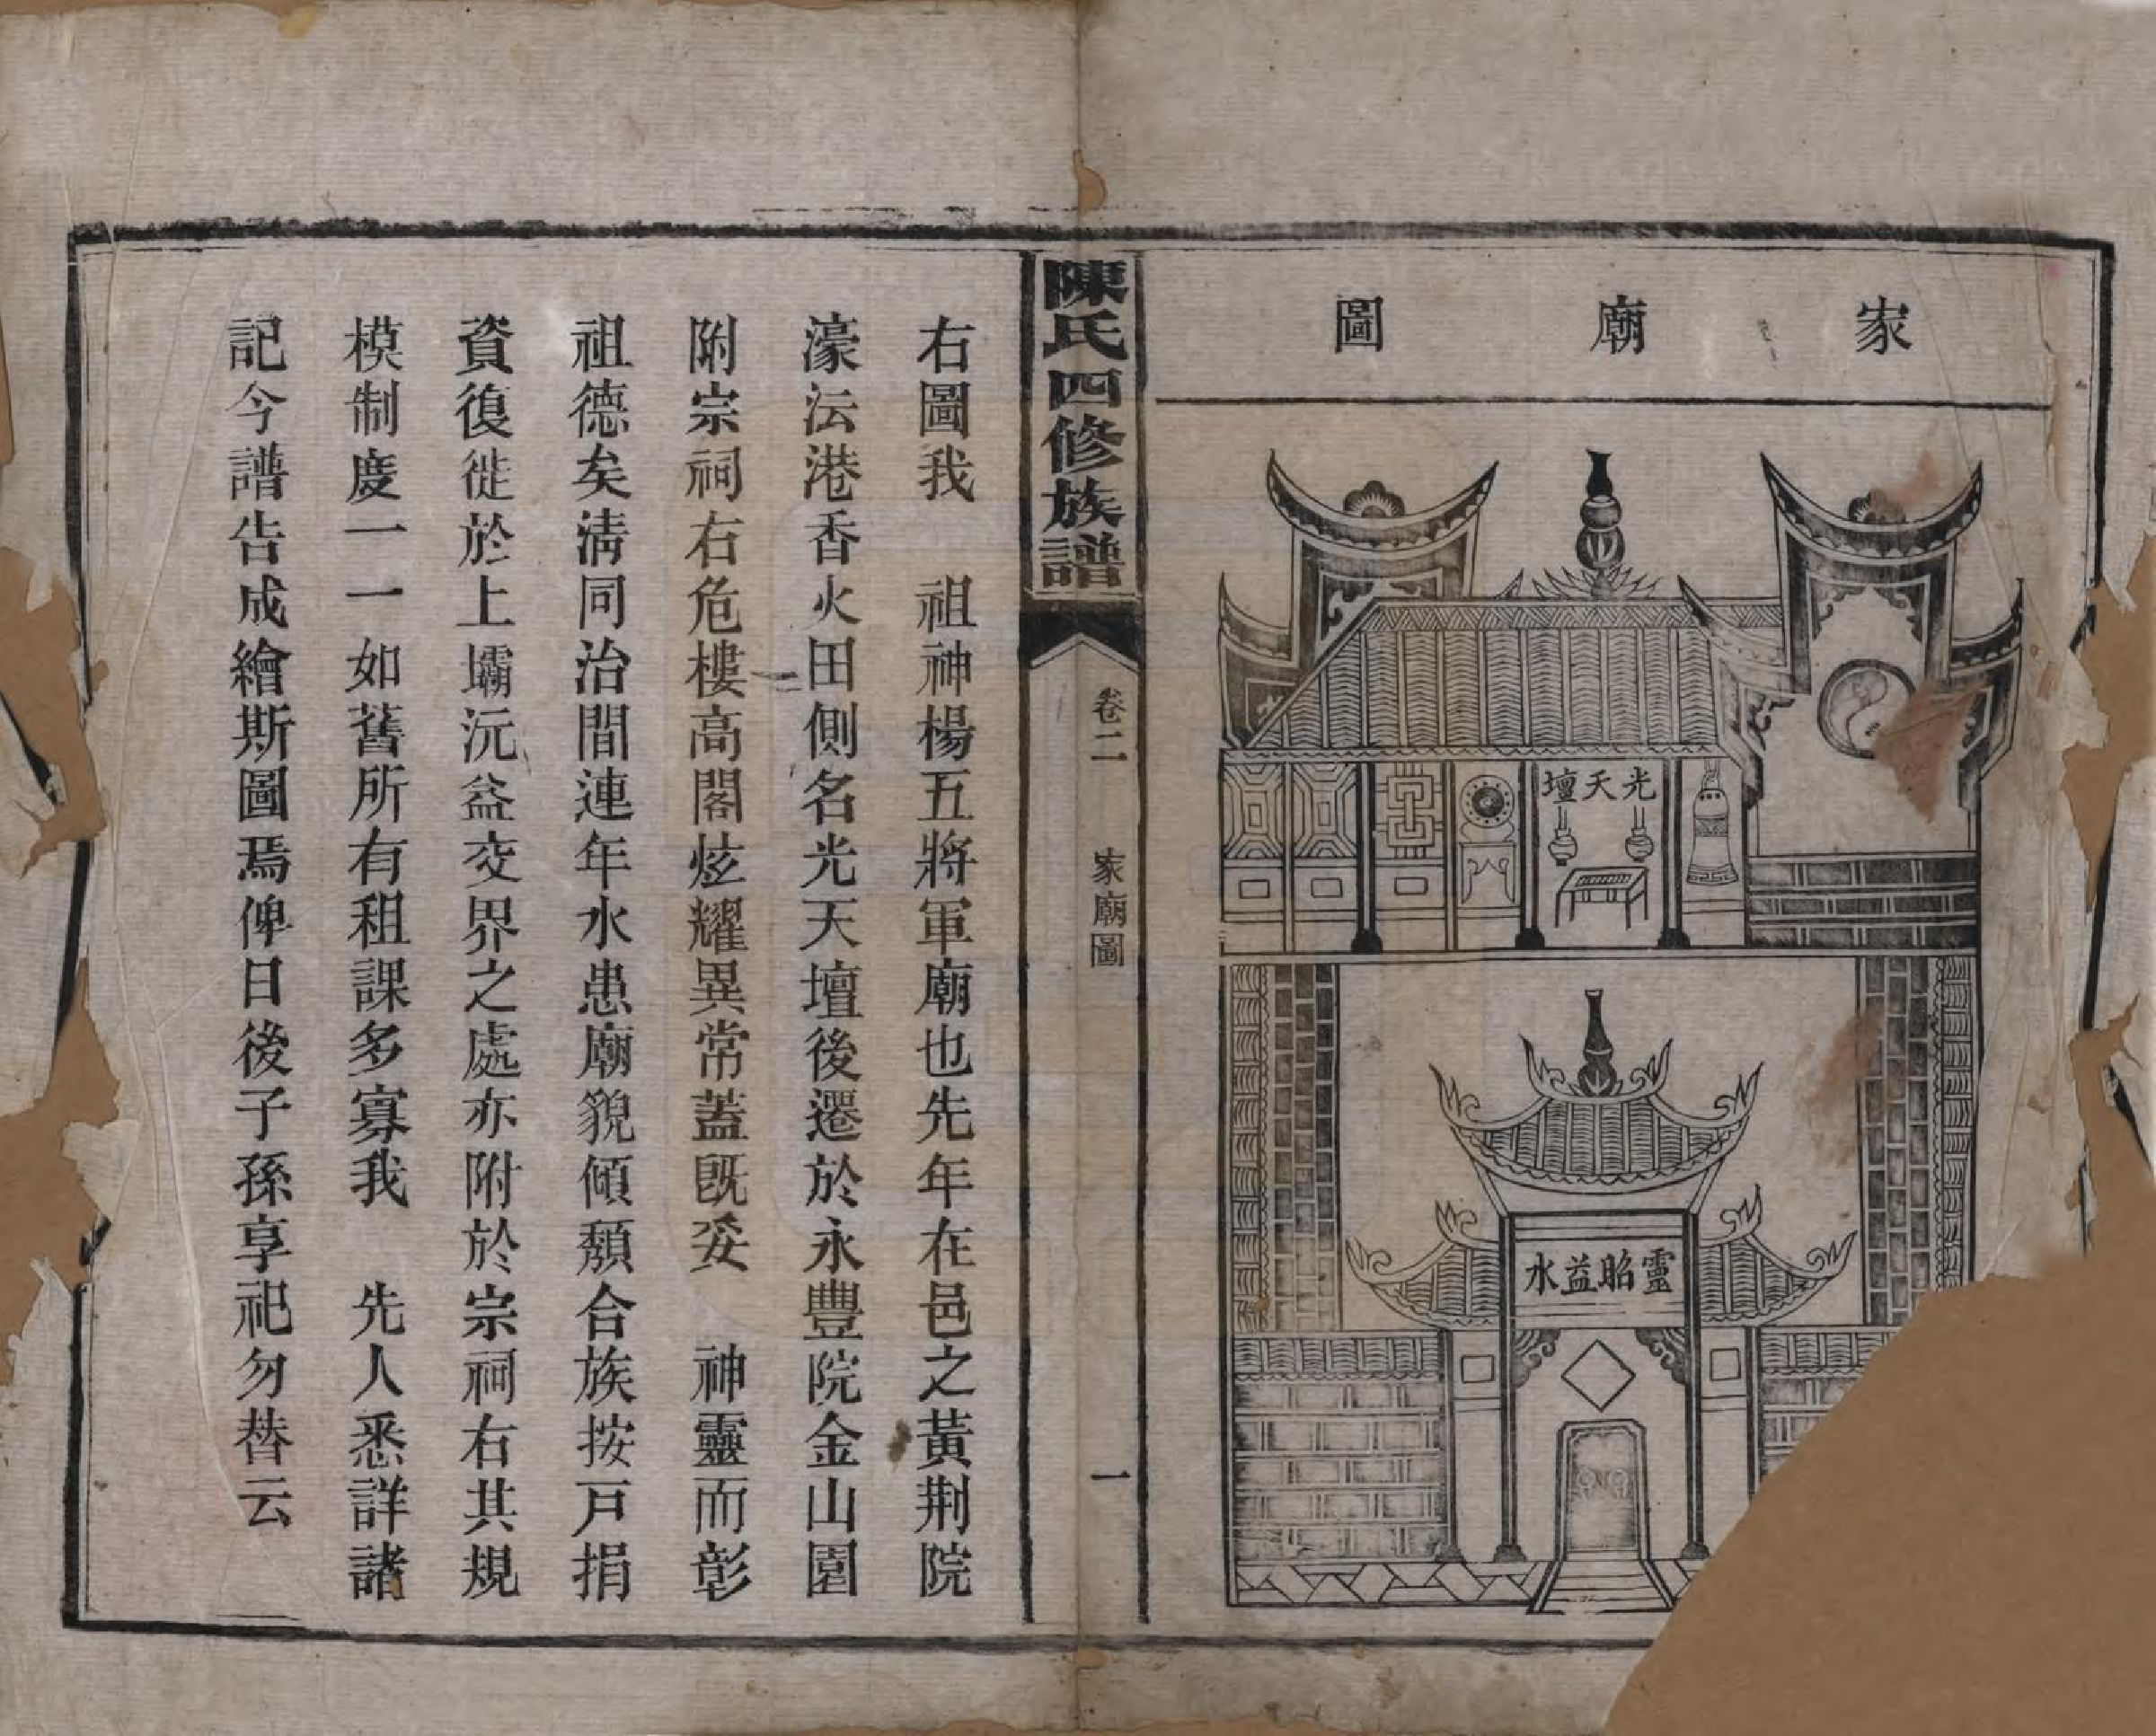 家廟圖
光天壇
靈昭益水
陳氏四修族譜
卷二　家廟圖
一
右圖我　祖神楊五將軍廟也先年在邑之黃荆院
濠法港香火田側名光天壇後遷於永豐院金山園
附宗祠右危樓高閣炫耀異常蓋既妥　神靈而彰
祖德矣淸同治間連年水患廟貌傾頽合族按戸捐
資復徙於上壩沅益交界之處亦附於宗祠右其規
模制度一一如舊所有租課多寡我　先人悉詳諸
記今譜告成繪斯圖焉俾日後子孫享祀勿替云